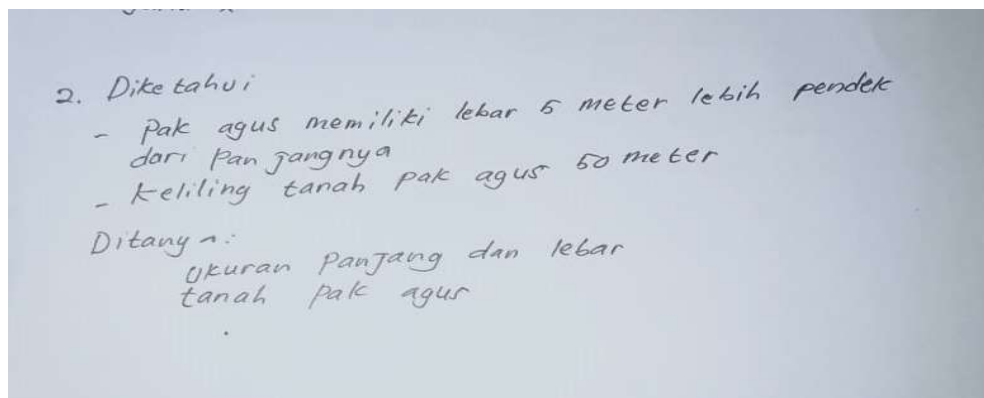 2. Diketahui
- Pak agus memiliki lebar 5 meter lebih pendek
dari Panjangnya
- Keliling tanah pak agus 50 meter
Ditanya:
Ukuran Panjang dan lebar
tanah pak agus